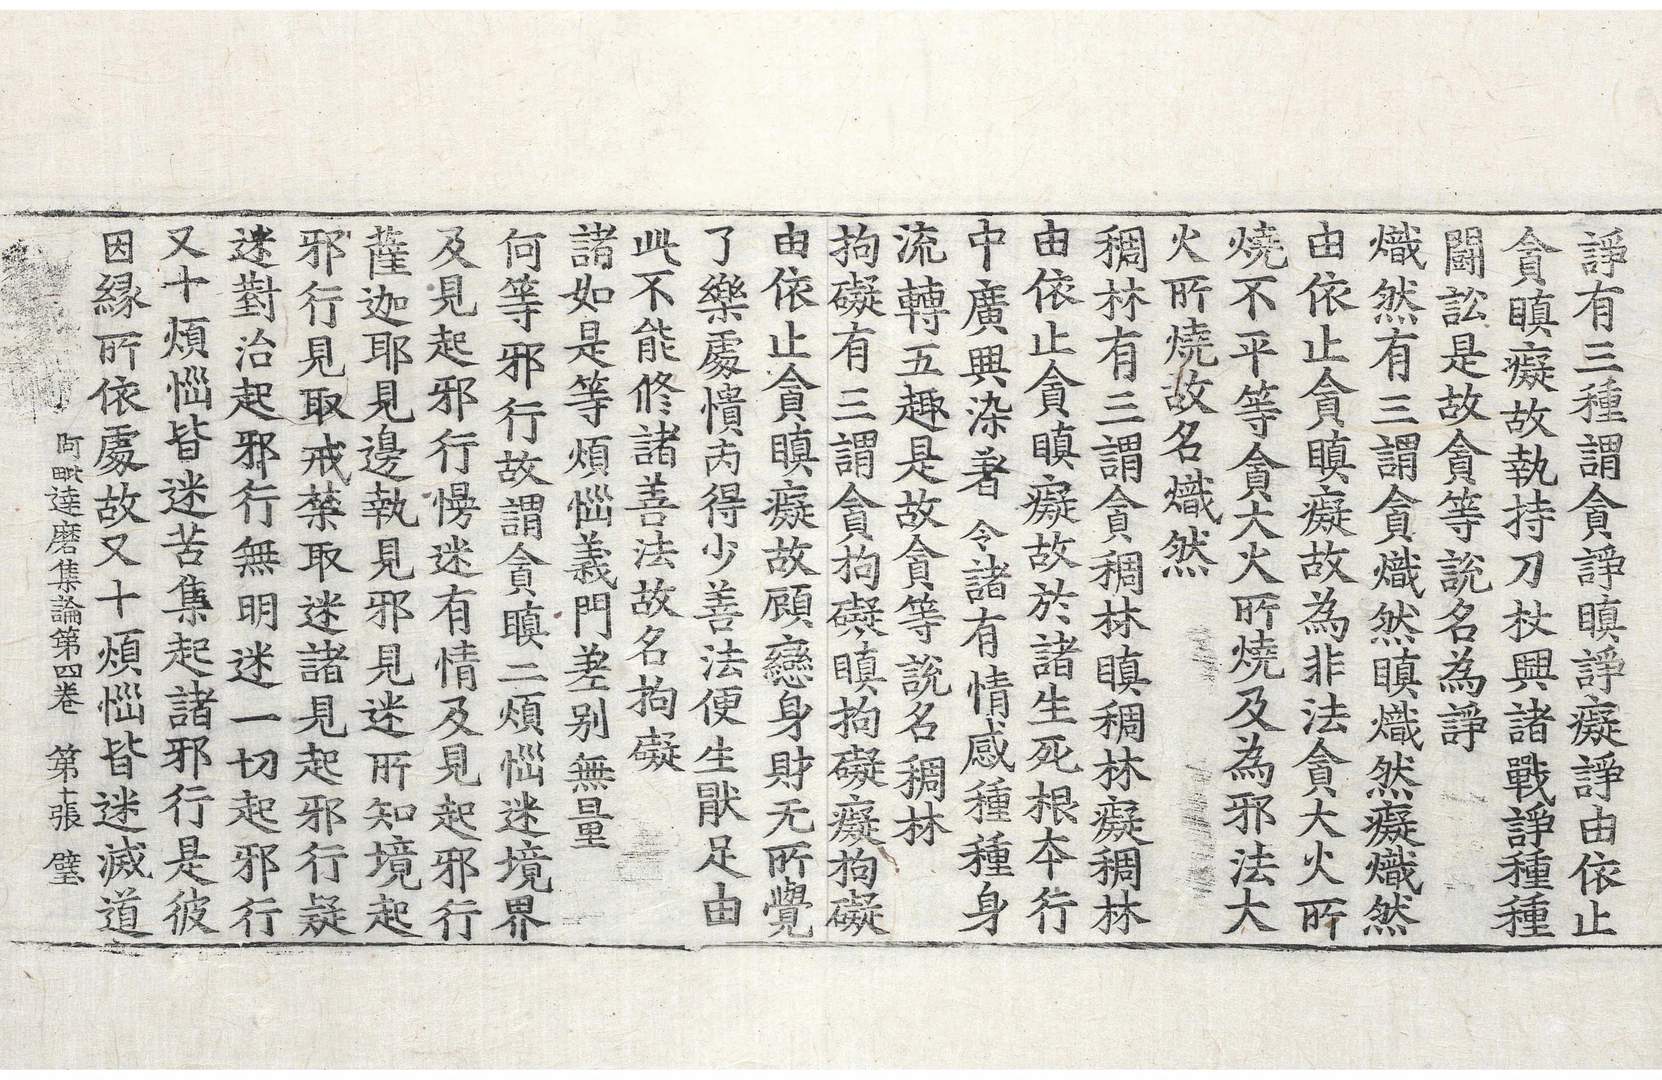 諍有三種謂貪諍瞋諍癡諍由依止
貪瞋癡故執持刀杖興諸戰諍種種
鬪訟是故貪等說名為諍
熾然有三謂貪熾然瞋熾然癡熾然
由依止貪瞋癡故為非法貪大火所
燒不平等貪大火所燒及為邪法大
火所燒故名熾然
稠林有三謂貪稠林瞋稠林癡稠林
由依止貪瞋癡故於諸生死根夲行
中廣興染著令諸有情感種種身
流轉五趣是故貪等說名稠林
拘礙有三謂貪拘礙瞋拘礙癡拘礙
由依止貪瞋癡故顧戀身財无所覺
了樂處憒丙得少善法便生猒足由
此不能修諸善法故名拘礙
諸如是等煩惱義門差别無量
何等邪行故謂貪瞋二煩惱迷境界
及見起邪行慢迷有情及見起邪行
薩迦耶見邊執見邪見迷所知境起
邪行見取戒禁取迷諸見起邪行疑
迷對治起邪行無明迷一切起邪行
又十煩惱皆迷苦集起諸邪行是彼
因縁所依處故又十煩惱皆迷滅道
阿毗達磨集論第四卷 第十張 璧